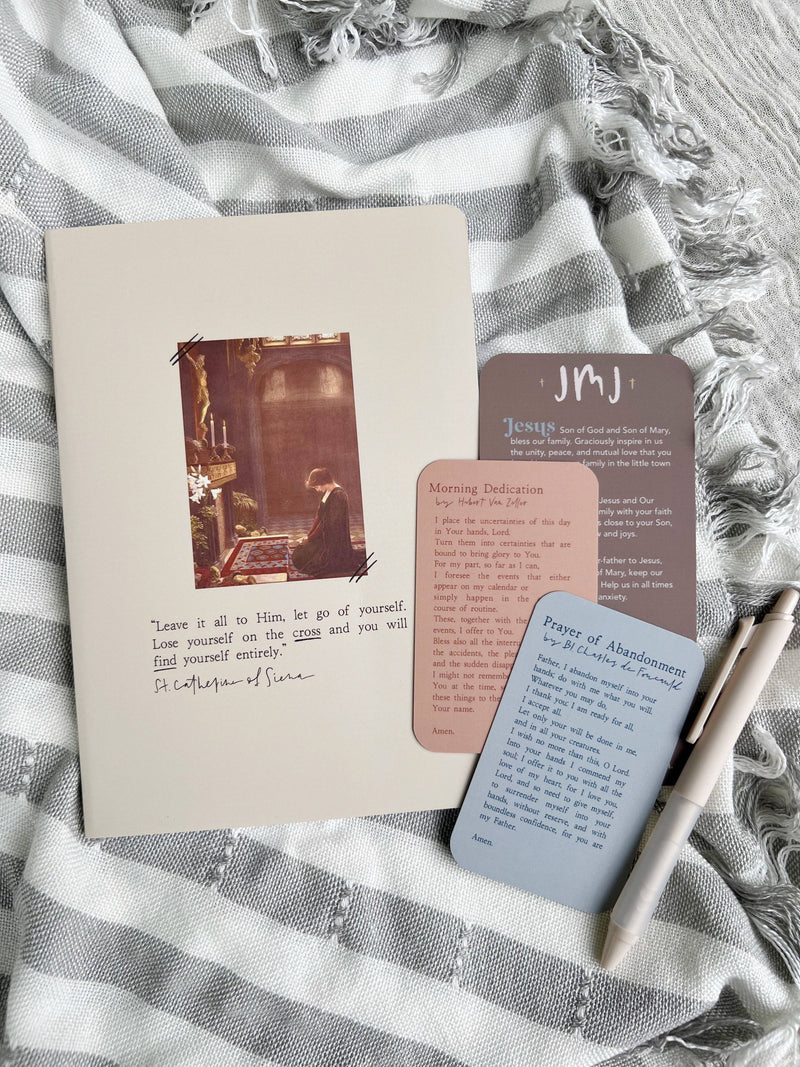 "Leave it all to Him, let go of yourself.
Lose yourself on the cross and you will
find yourself entirely."
St. Catherine of Siena
† JMJ †
Jesus Son of God and Son of Mary,
bless our family. Graciously inspire in us
the unity, peace, and mutual love that you
family in the little town
Jesus and Our
family with your faith
s close to your Son,
ow and joys.
r-father to Jesus,
of Mary, keep our
Help us in all times
anxiety.
Morning Dedication
by Hubert Van Zeller
I place the uncertainties of this day
in Your hands, Lord.
Turn them into certainties that are
bound to bring glory to You.
For my part, so far as I can,
I foresee the events that either
appear on my calendar or
simply happen in the
course of routine.
These, together with the
events, I offer to You.
Bless also all the
the accidents, the
and the sudden
I might not remember
You at the time,
these things to the
Your name.
Amen.
Prayer of Abandonment
by Bl Charles de Foucauld
Father, I abandon myself into your
hands; do with me what you will.
Whatever you may do,
I thank you: I am ready for all,
I accept all.
Let only your will be done in me,
and in all your creatures.
I wish no more than this, O Lord.
Into your hands I commend my
soul; I offer it to you with all the
love of my heart, for I love you,
Lord, and so need to give myself,
to surrender myself into your
hands, without reserve, and with
boundless confidence, for you are
my Father.
Amen.